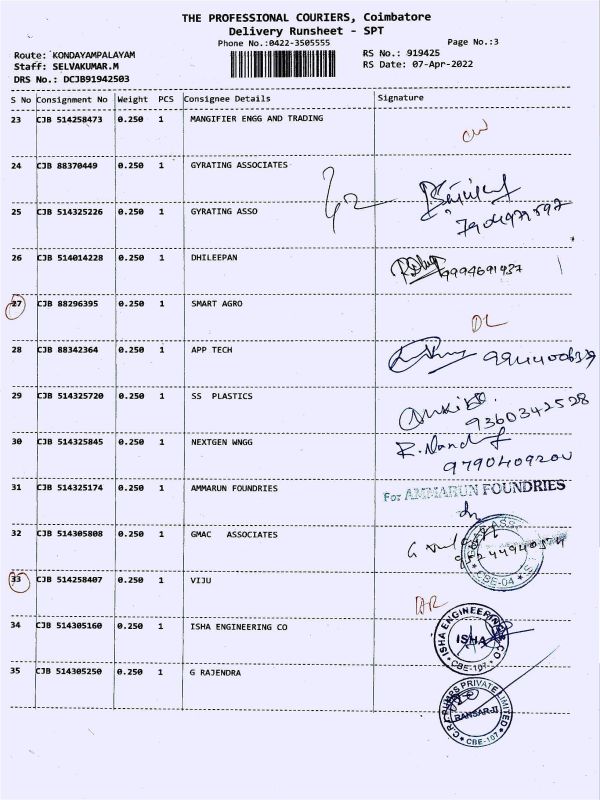 THE PROFESSIONAL COURIERS, Coimbatore
Delivery Runsheet - SPT
Phone No.:0422-3505555
Page No.:3
Route: KONDAYAMPALAYAM
RS No.: 919425
Staff: SELVAKUMAR.M
RS Date: 07-Apr-2022
DRS No.: DCJB91942503
S No Consignment No Weight PCS Consignee Details Signature
23 CJB 514258473 0.250 1 MANGIFIER ENGG AND TRADING
24 CJB 88370449 0.250 1 GYRATING ASSOCIATES
25 CJB 514325226 0.250 1 GYRATING ASSO
26 CJB 514014228 0.250 1 DHILEEPAN
9994691437
27 CJB 88296395 0.250 1 SMART AGRO
DL
28 CJB 88342364 0.250 1 APP TECH
29 CJB 514325720 0.250 1 SS PLASTICS
9360342528
30 CJB 514325845 0.250 1 NEXTGEN WNGG
31 CJB 514325174 0.250 1 AMMARUN FOUNDRIES For AMMARUN FOUNDRIES
32 CJB 514305808 0.250 1 GMAC ASSOCIATES
CBE-04
33 CJB 514258407 0.250 1 VIJU
34 CJB 514305160 0.250 1 ISHA ENGINEERING CO
ISHA ENGINEERING CO
ISHA
CBE-107
35 CJB 514305250 0.250 1 G RAJENDRA
C.R.I PUMPS PRIVATE LIMITED
BANSARJI
CBE-107